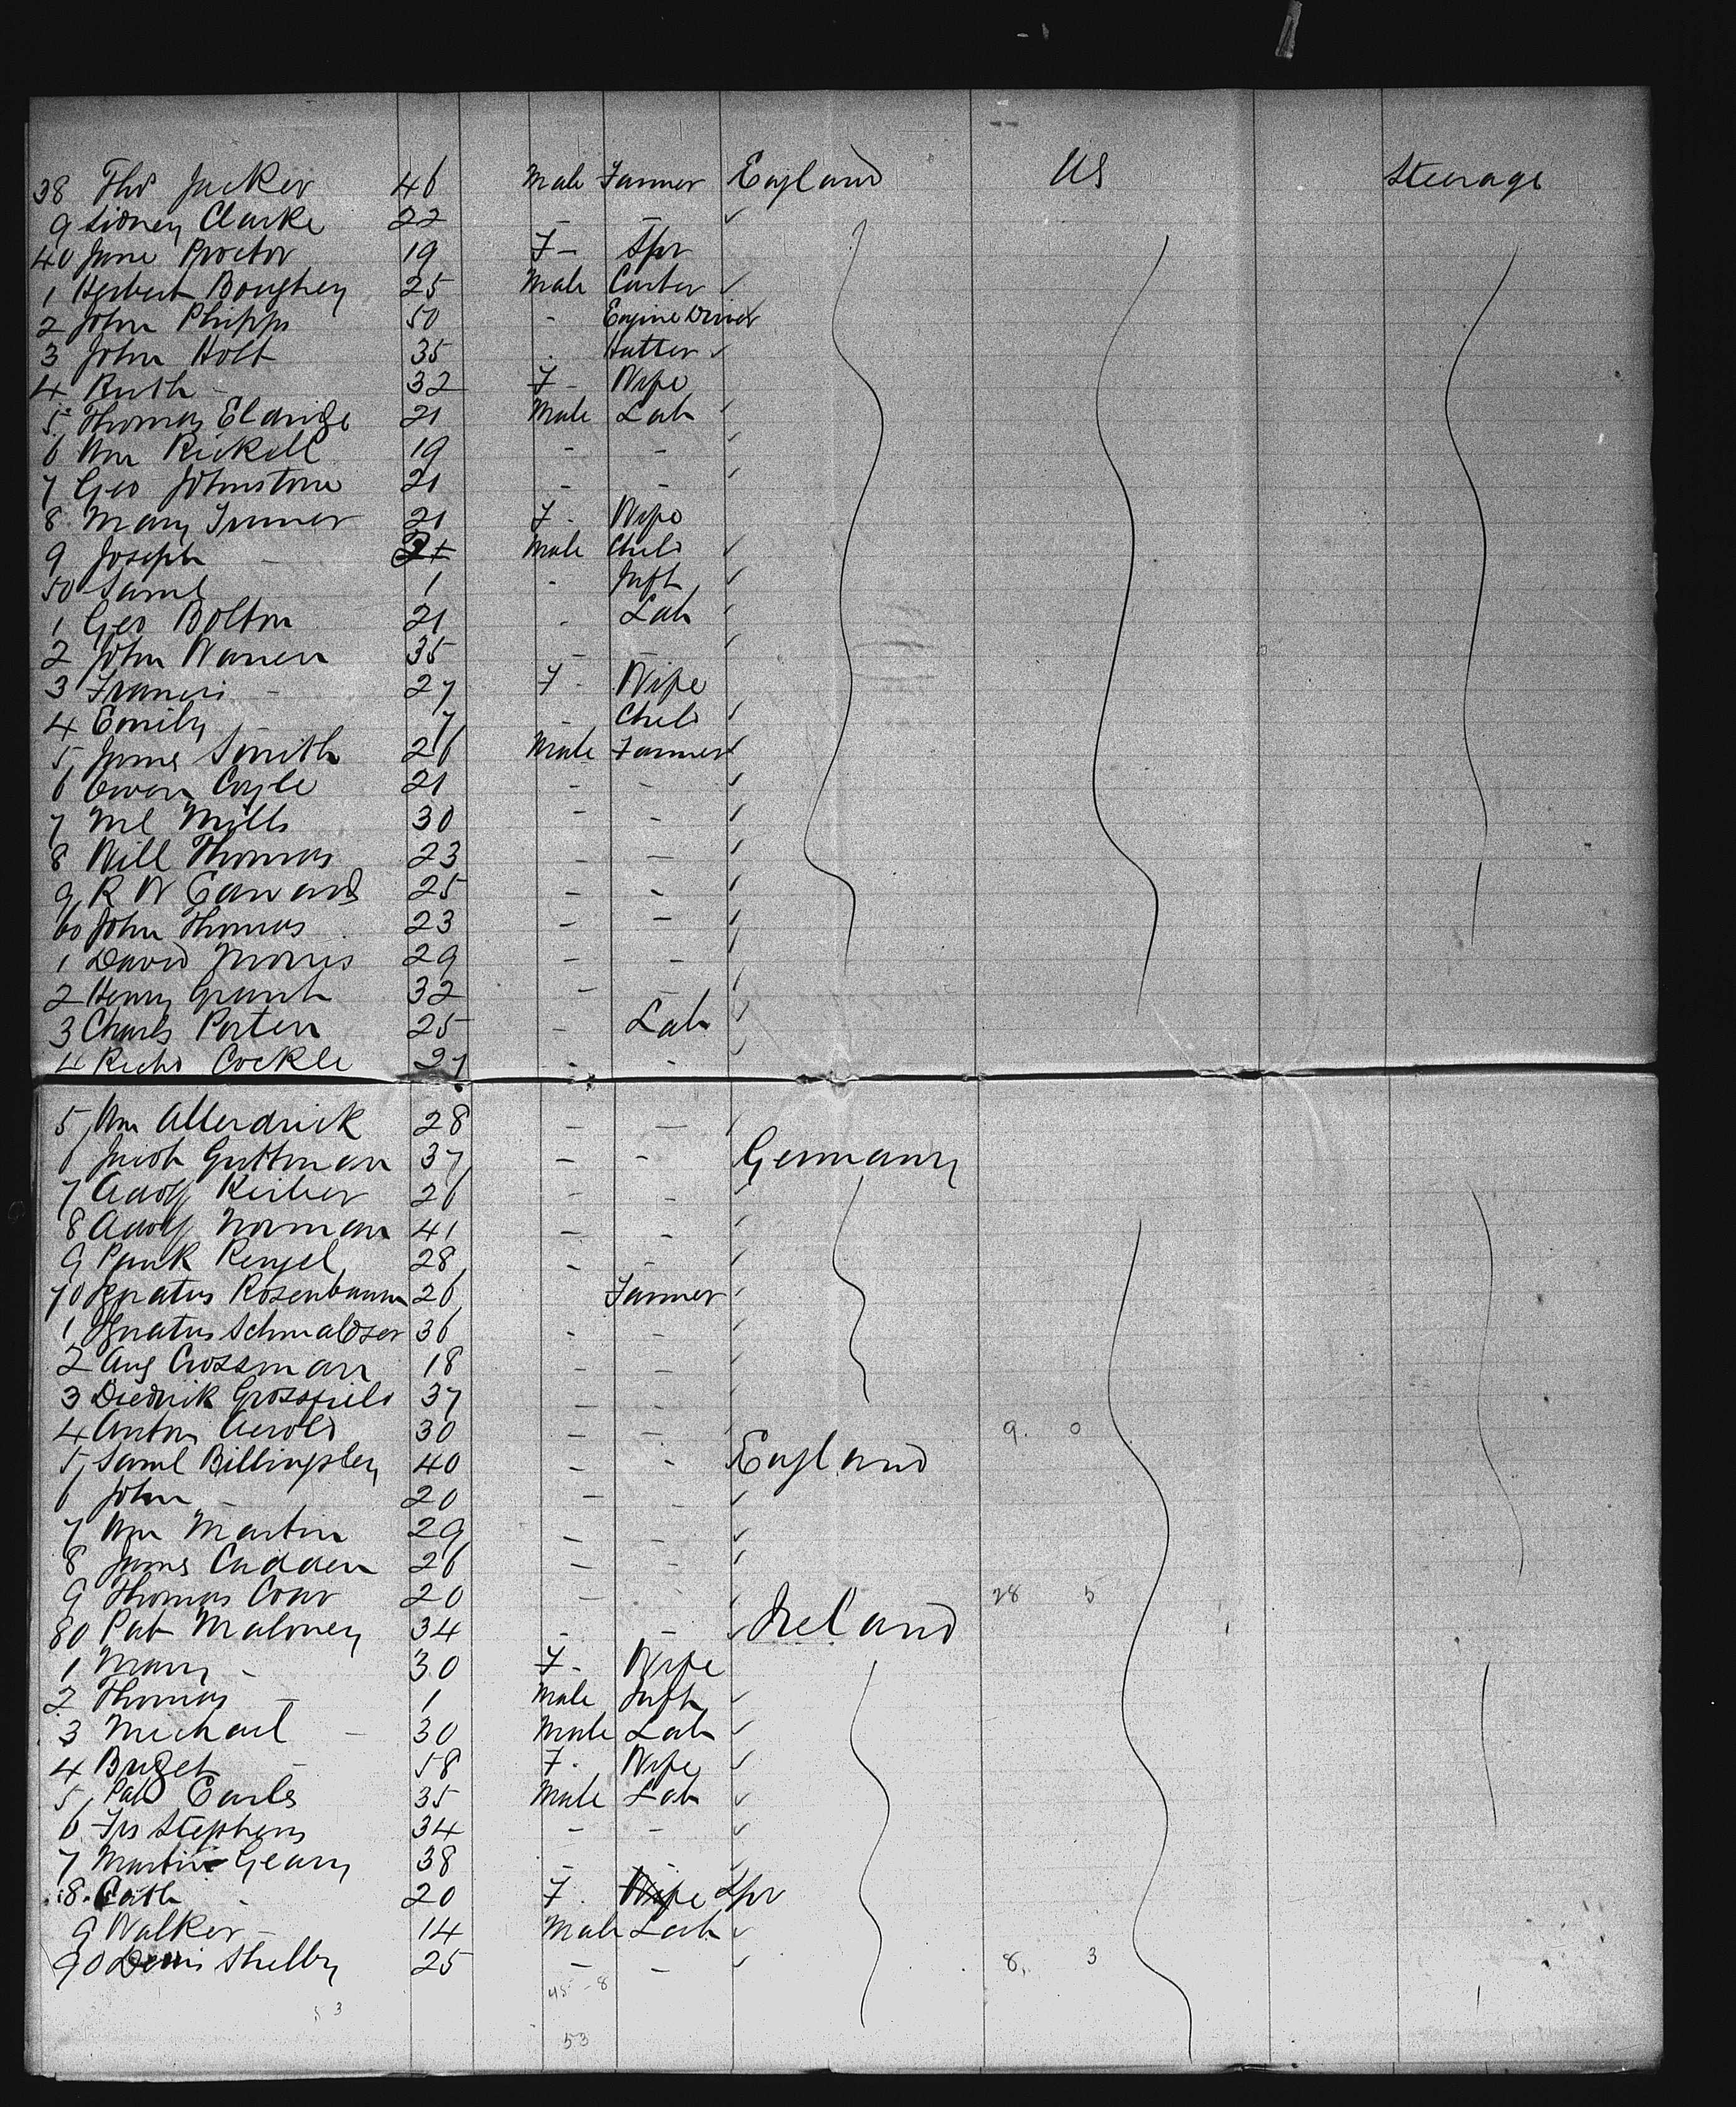 38 Thos Jucker 46 Male Farmer England US Steerage
9 Sidney Clarke 22 - -
40 Jane Proctor 19 F - Spr
1 Herbert Boughey 25 Male Carter
2 John Phipps 50 - Engine Driver
3 John Holt 35 - Hatter
4 Ruth - 32 F - Wife
5 Thomas Eldridge 21 Male Lab
6 Wm Rickell 19 - -
7 Geo Johnstone 21 - -
8 Mary Turner 21 F - Wife
9 Joseph - Male Child
50 Saml 1 - Inft
1 Geo Bolton 21 - Lab
2 John Warren 35 - -
3 Francis - 27 F - Wife
4 Emily - 7 - Child
5 James Smith 26 Male Farmer
6 Owen Coyle 21 - -
7 Ml Mills 30 - -
8 Will Thomas 23 - -
9 R W Edwards 25 - -
60 John Thomas 23 - -
1 David Morris 29 - -
2 Henry Grant 32 - -
3 Charls Porter 25 - Lab
4 Richd Cockle 27 - -
5 Wm Allerdrick 28 - -
6 Jacob Guttman 37 - - Germany
7 Adolf 26 - -
8 Adolf Norman 41 - -
9 Rengel 28 - -
70 Ignatus Rosenbaum 26 Farmer
1 Ignatus Schmaldzer 36 - -
2 Aug Crossman 18 - -
3 Diedrik Grossfield 37 - -
4 Anton Aerold 30 - - 9. 0
5 Saml Billingsley 40 - - England
6 John - 20 - -
7 Wm Martin 29 - -
8 James Cadden 26 - -
9 Thomas Coar 20 - - 28 5
80 Pat Maloney 34 - - Ireland
1 Mary - 30 F - Wife
2 Thomas - 1 Male Inft
3 Michael - 30 Male Lab
4 Bridget - 58 F - Wife
5 Patk Earls 35 Male Lab
6 Frs Stephens 34 - -
7 Martin Geary 38 - -
8 Cath - 20 F - Wife Spr
9 Walker - 14 Male Lab
90 Denis Shelby 25 - - 8. 3
45 - 8
53